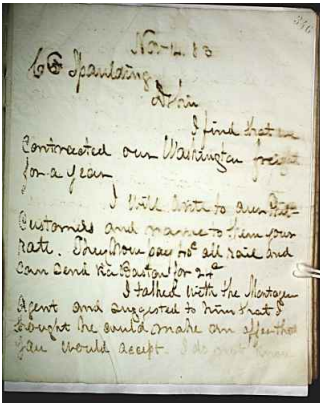 346
Nov 14. 83
Spaulding
D Sir
I find that we
Contracted our Washington freight
for a year
I will write to our
Customers and name to them your
rate. They now pay 40c all rail and
can send via Boston for
I talked with the Montague
Agent and suggested to him that I
thought he could make an offer that
you would accept. I do not know